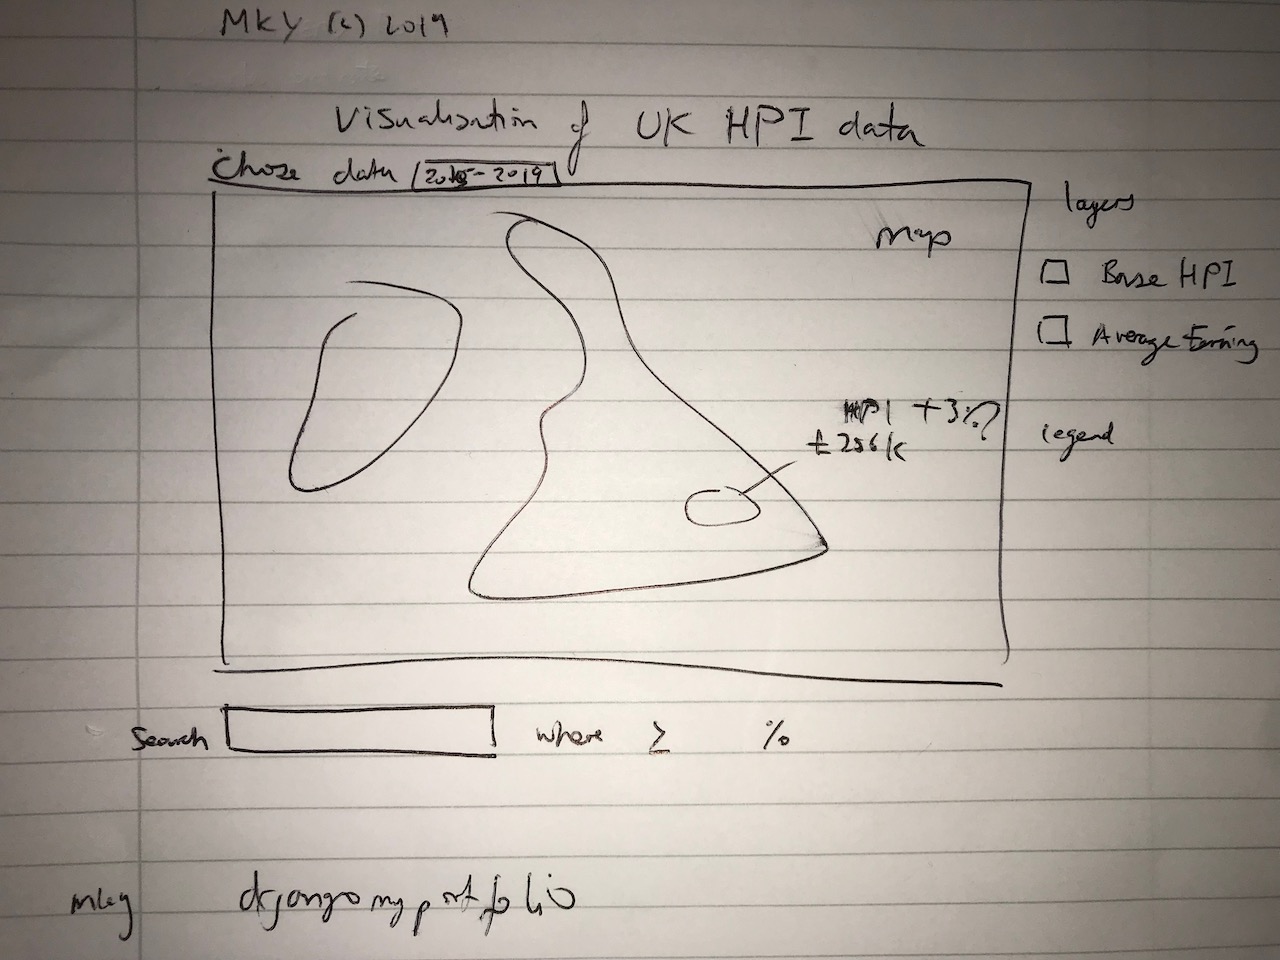 MKY (c) 2019
Visualisation of UK HPI data
Chose data 2015-2019
layers
map
Base HPI
Average Earning
HPI +3%
£256K
legend
Search where ≥ %
mky djangomyportfolio